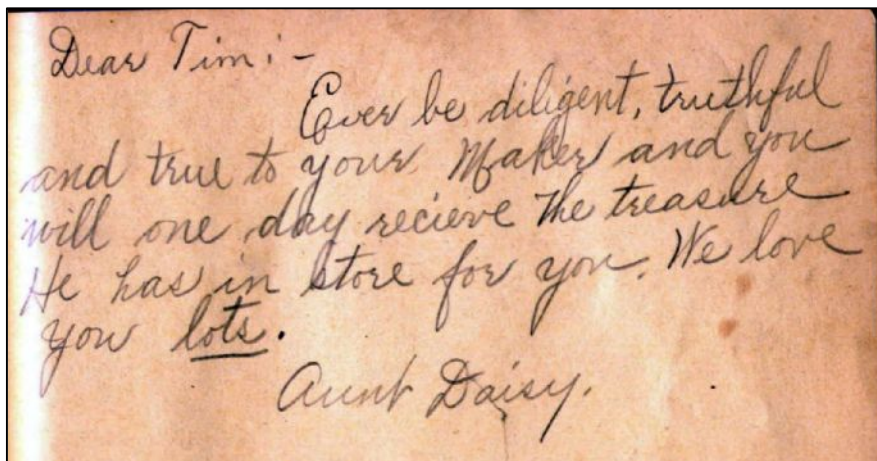 Dear Tim:-
Ever be diligent, truthful
and true to your Maker and you
will one day recieve the treasure
He has in store for you. We love
you lots.
Aunt Daisy.